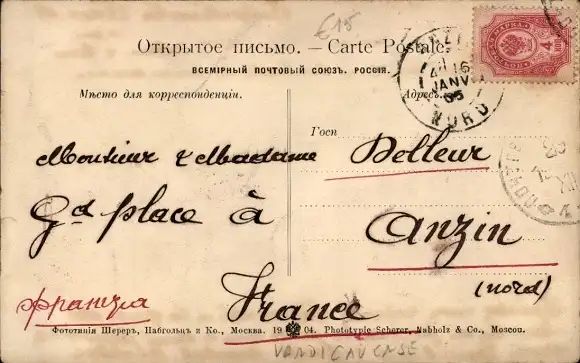 €15
Открытое письмо. — Carte Postale.
ВСЕМІРНЫЙ ПОЧТОВЫЙ СОЮЗЪ. РОССІЯ.
Мѣсто для корреспонденціи.
Адресъ
16
JANV
05
NORD
4
Госп
Monsieur & Madame Delleur
Gd place à Anzin
(nord)
франція
France
Фототипія Шереръ, Набгольцъ и Ко., Москва. 19 04. Phototypie Scherer, Nabholz & Co., Moscou.